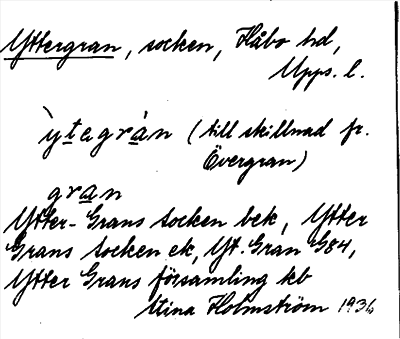 Yttergran, socken, Håbo hd,
Upps. l.
ỳtegràn (till skillnad fr.
Övergran)
gran
Ytter-Grans socken bek, Ytter
Grans socken ek, Yt. Gran G84,
Ytter Grans församling kb
Stina Holmström 1936